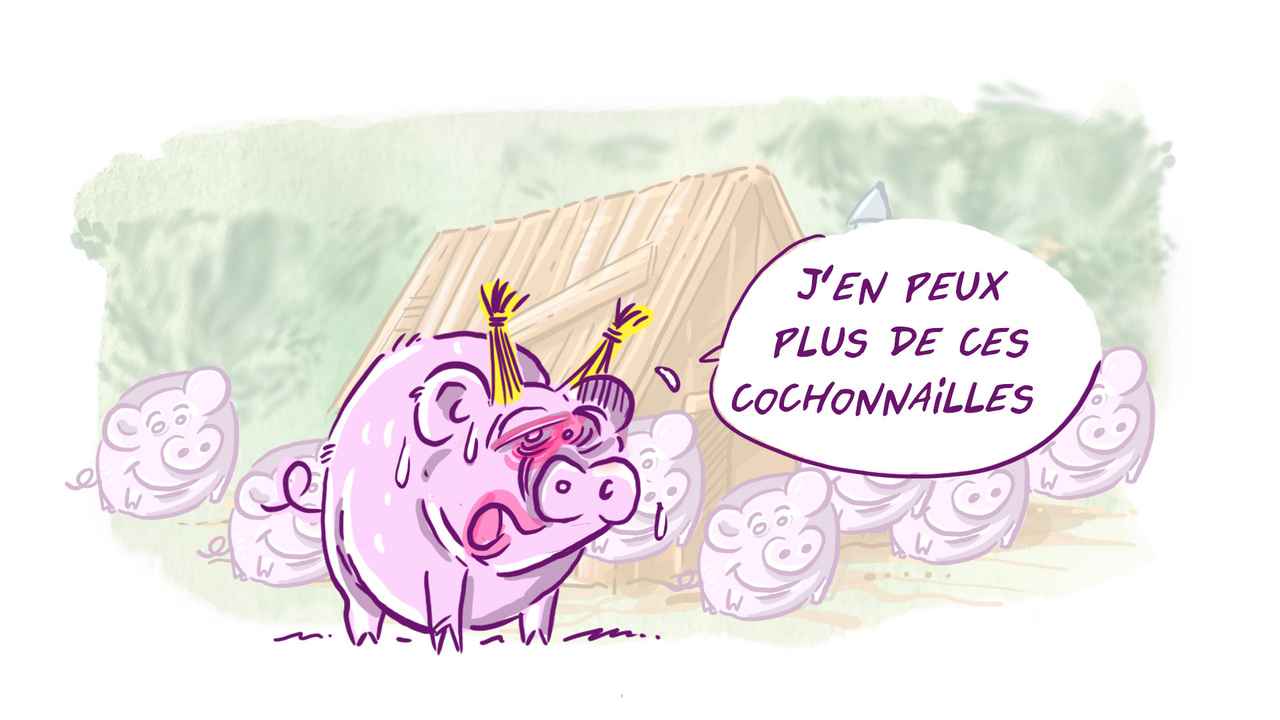 J'EN PEUX
PLUS DE CES
COCHONNAiLLES